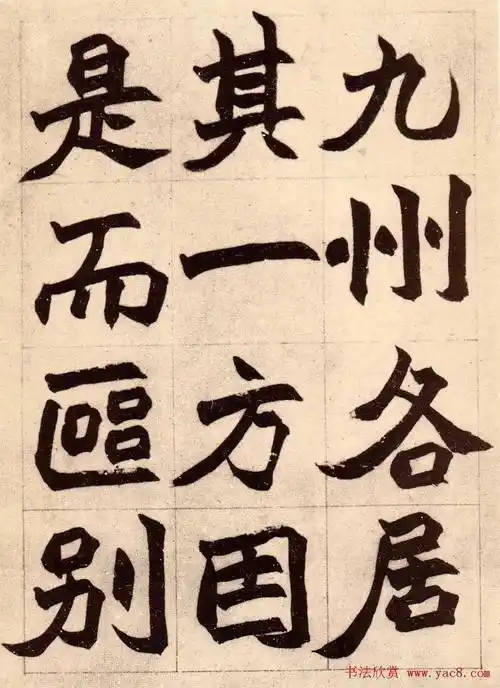 九州各居
其一方因
是而區别
书法欣赏 www.yac8.com